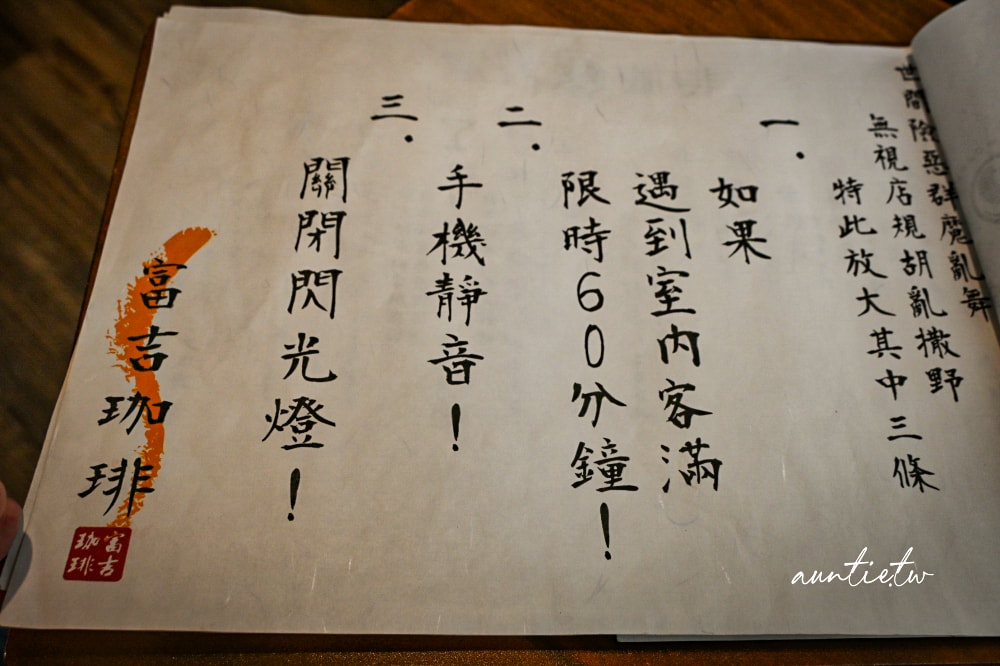 世間險惡群魔亂舞
無視店規胡亂撒野
特此放大其中三條
一.
如果
遇到室內客滿
限時60分鐘!
二.
手機靜音!
三.
關閉閃光燈!
富吉珈琲
富吉
珈琲
auntie.tw